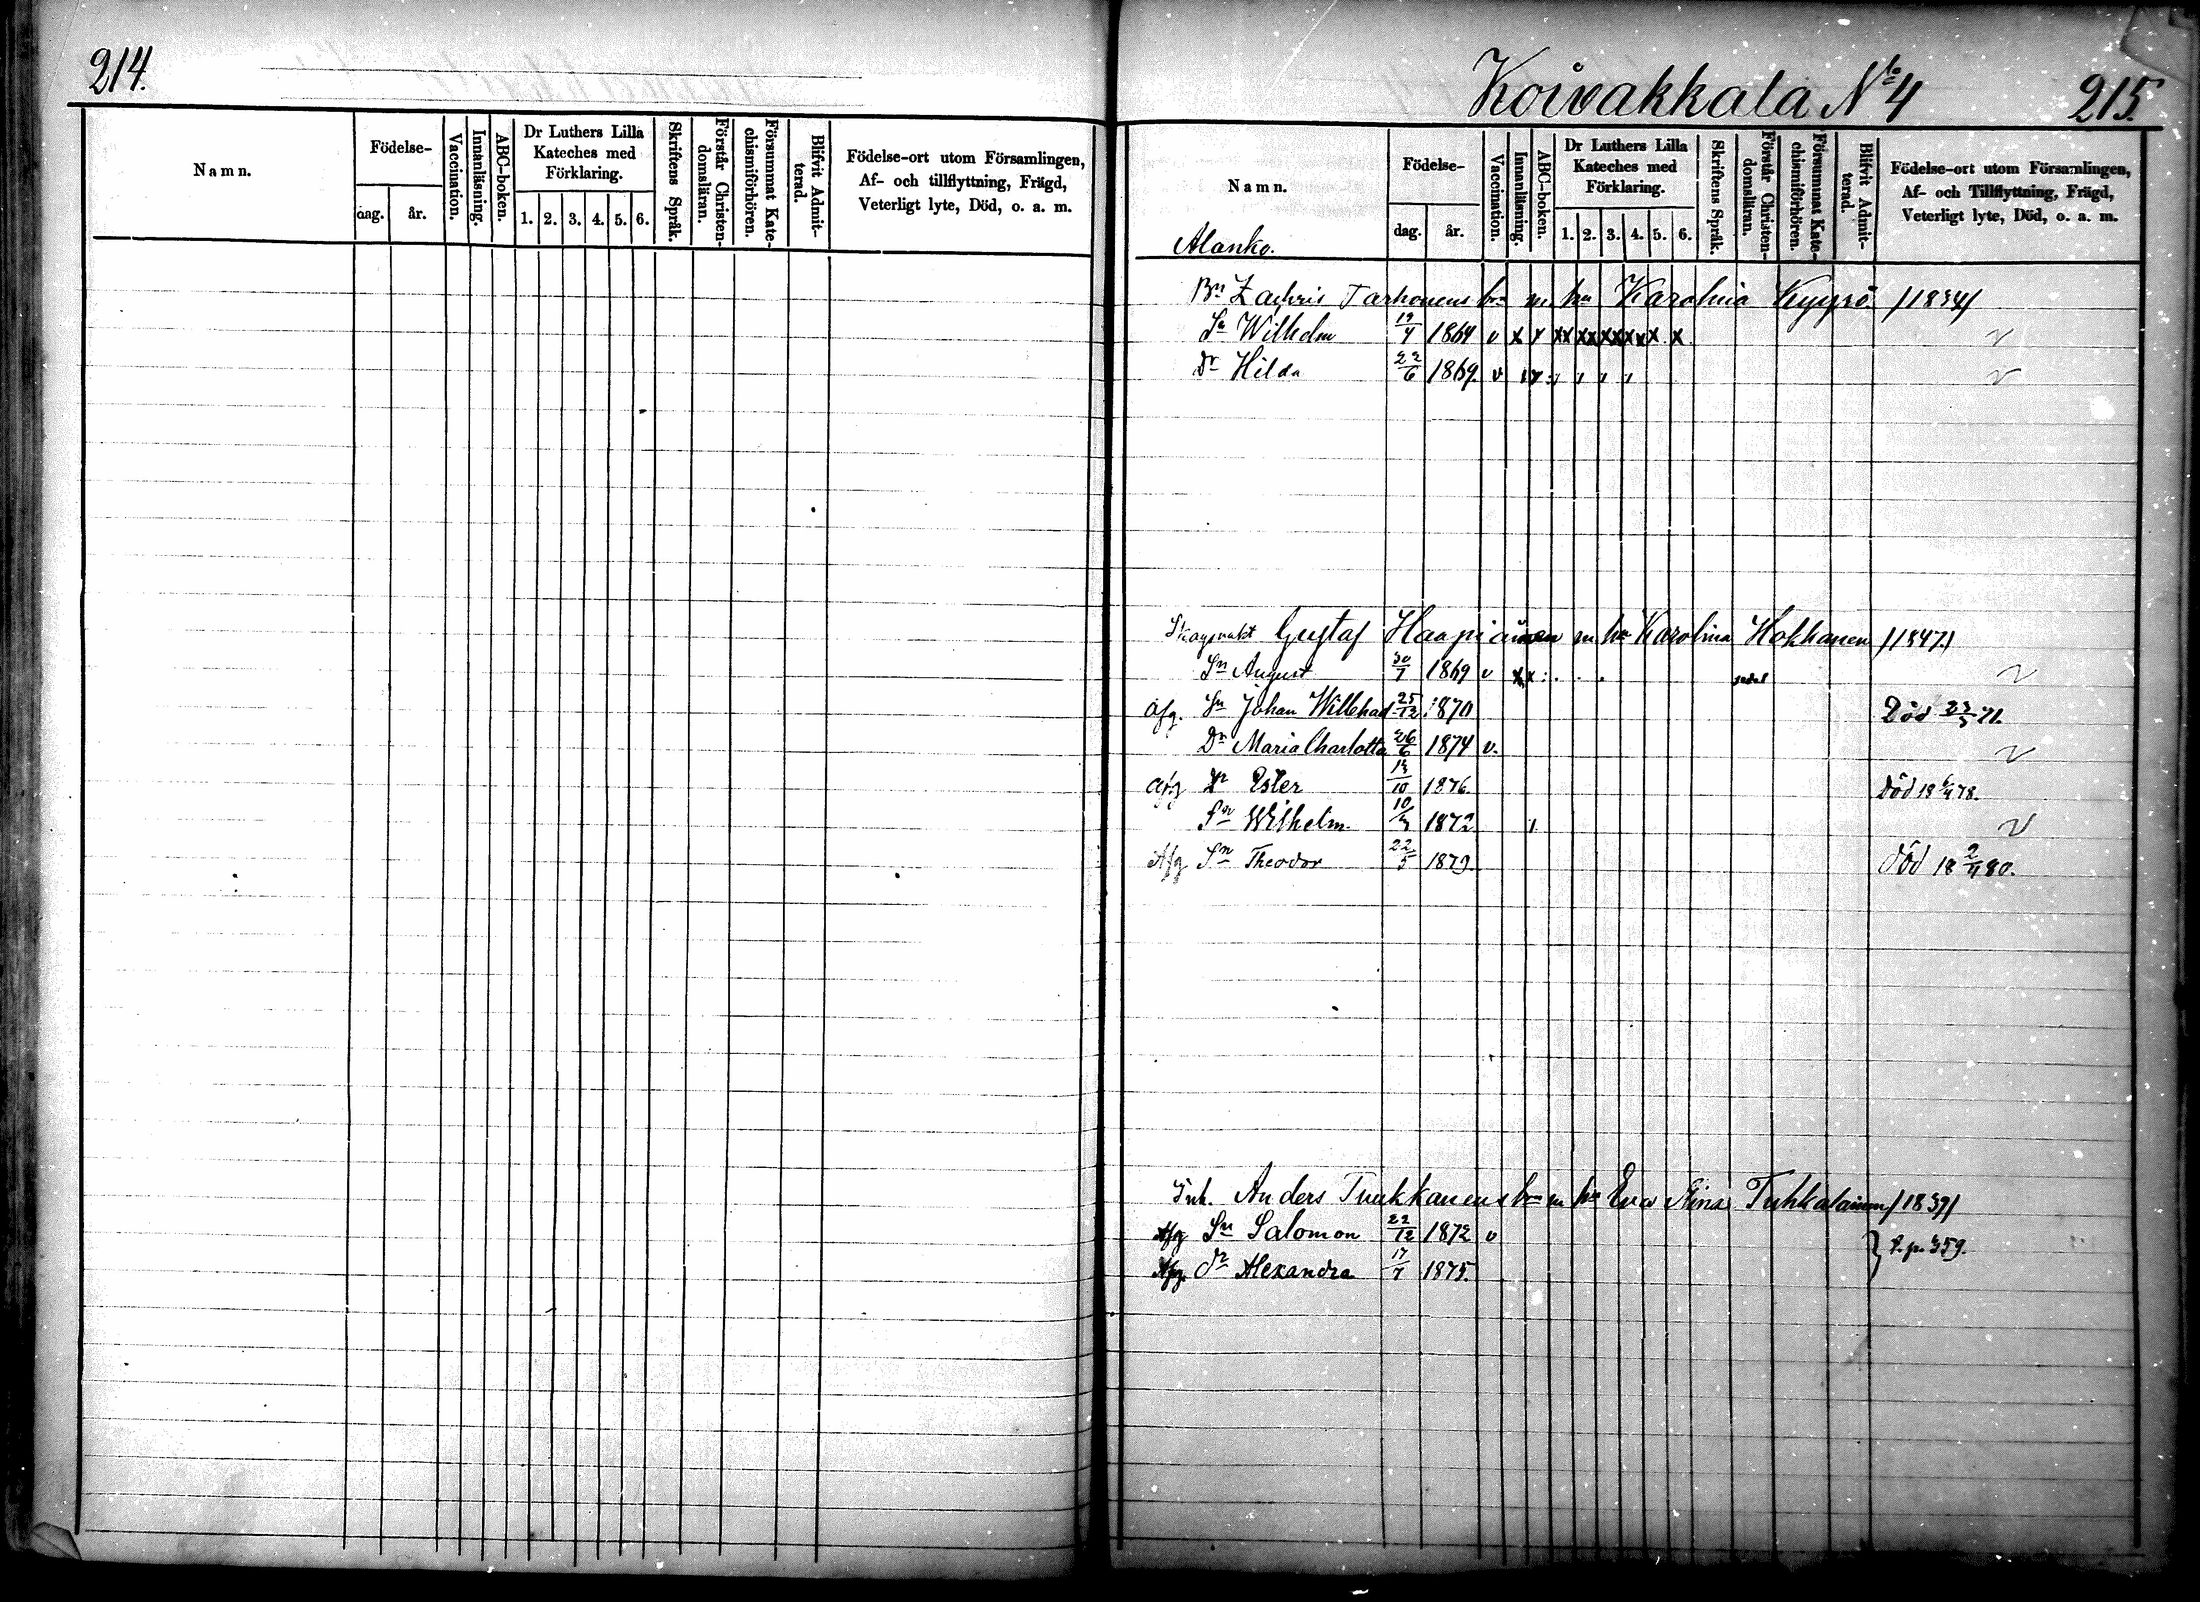 214.
Namn.
Födelse-
dag. år.
Vaccination.
Innanläsning.
ABC-boken.
Dr Luthers Lilla Kateches med Förklaring.
1. 2. 3. 4. 5. 6.
Skriftens Språk.
Förstår Christendomsläran.
Försummat Katechismiförhören.
Blifvit Admitterad.
Födelse-ort utom Församlingen,
Af- och tillflyttning, Frägd,
Veterligt lyte, Död, o. a. m.
Koivakkala No 4 215.
Namn.
Alanko.
Födelse-
dag. år.
Vaccination.
Innanläsning.
ABC-boken.
Dr Luthers Lilla Kateches med Förklaring.
1. 2. 3. 4. 5. 6.
Skriftens Språk.
Förstår Christendomsläran.
Försummat Katechismiförhören.
Blifvit Admitterad.
Födelse-ort utom Församlingen,
Af- och Tillflyttning, Frägd,
Veterligt lyte, Död, o. a. m.
Bn Zachris Tarhonens bn m hu Karolina Kyyrö /1834/
Sn Wilhelm 19/4 1864 v x x xx xx xx xx x x
Dr Hilda 22/6 1869. v
Skogsvakt Gustaf Haapiainen m hu Karolina Hokkanen /1847./
Sn August 30/7 1869 v x x
Afg. Sn Johan Willehad 25/12 1870 Död 71.
Dr Maria Charlotta 26/6 1874 v.
Afg Dr Ester 13/10 1876 Död 18 6/4 78.
Sn Wilhelm 1872
Afg Sn Theodor 22/5 1879. död 18 2/4 80.
Inh. Anders Tuukkanens bn m hu Eva Stina Tuhkalainen /1839/
Afg Sn Salomon 22/12 1872 v
Afg. dr Alexandra 17/7 1875. } p. 359.